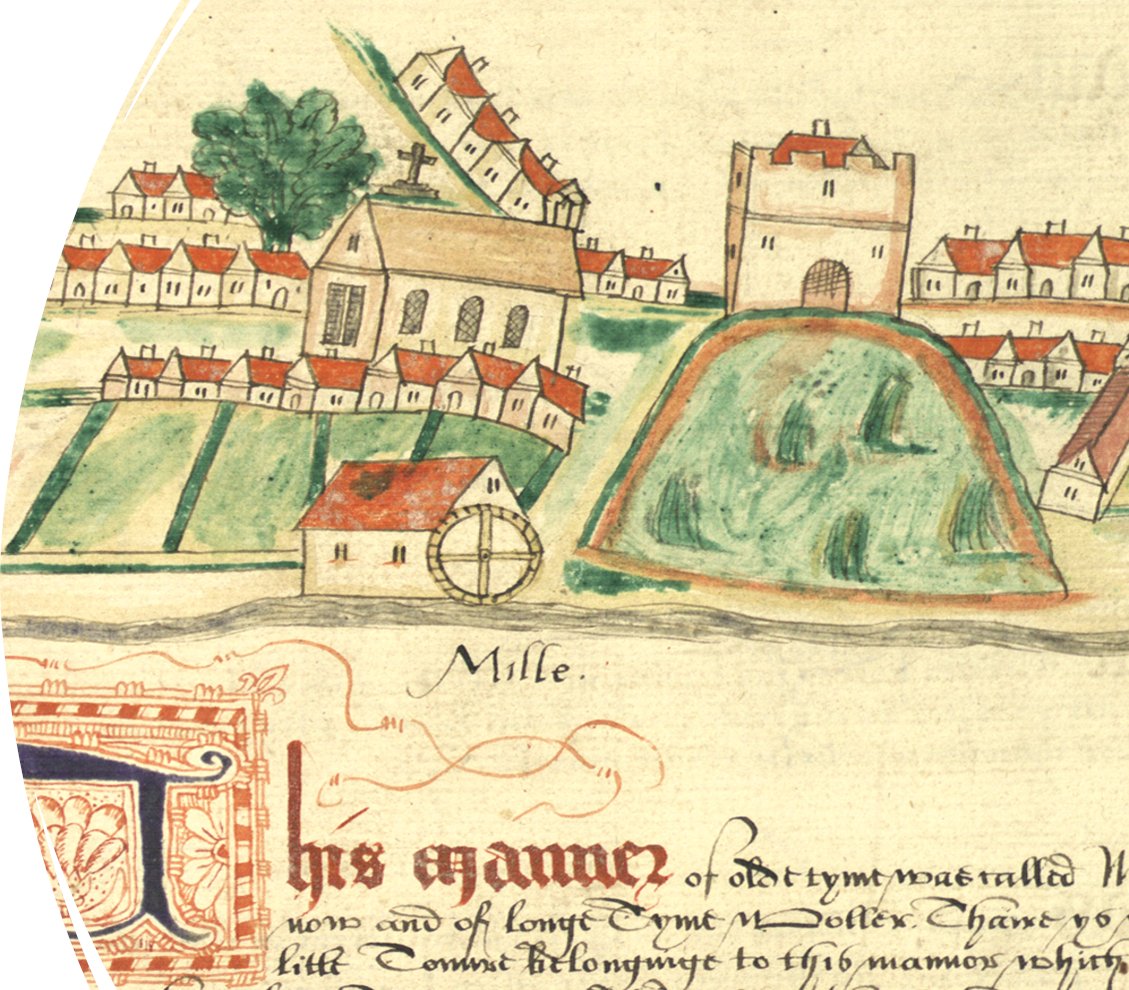 Mille.
This manner of olde tyme was called
now and of longe Tyme Woller. Thare ys
litle Towne belonginge to this mannor which